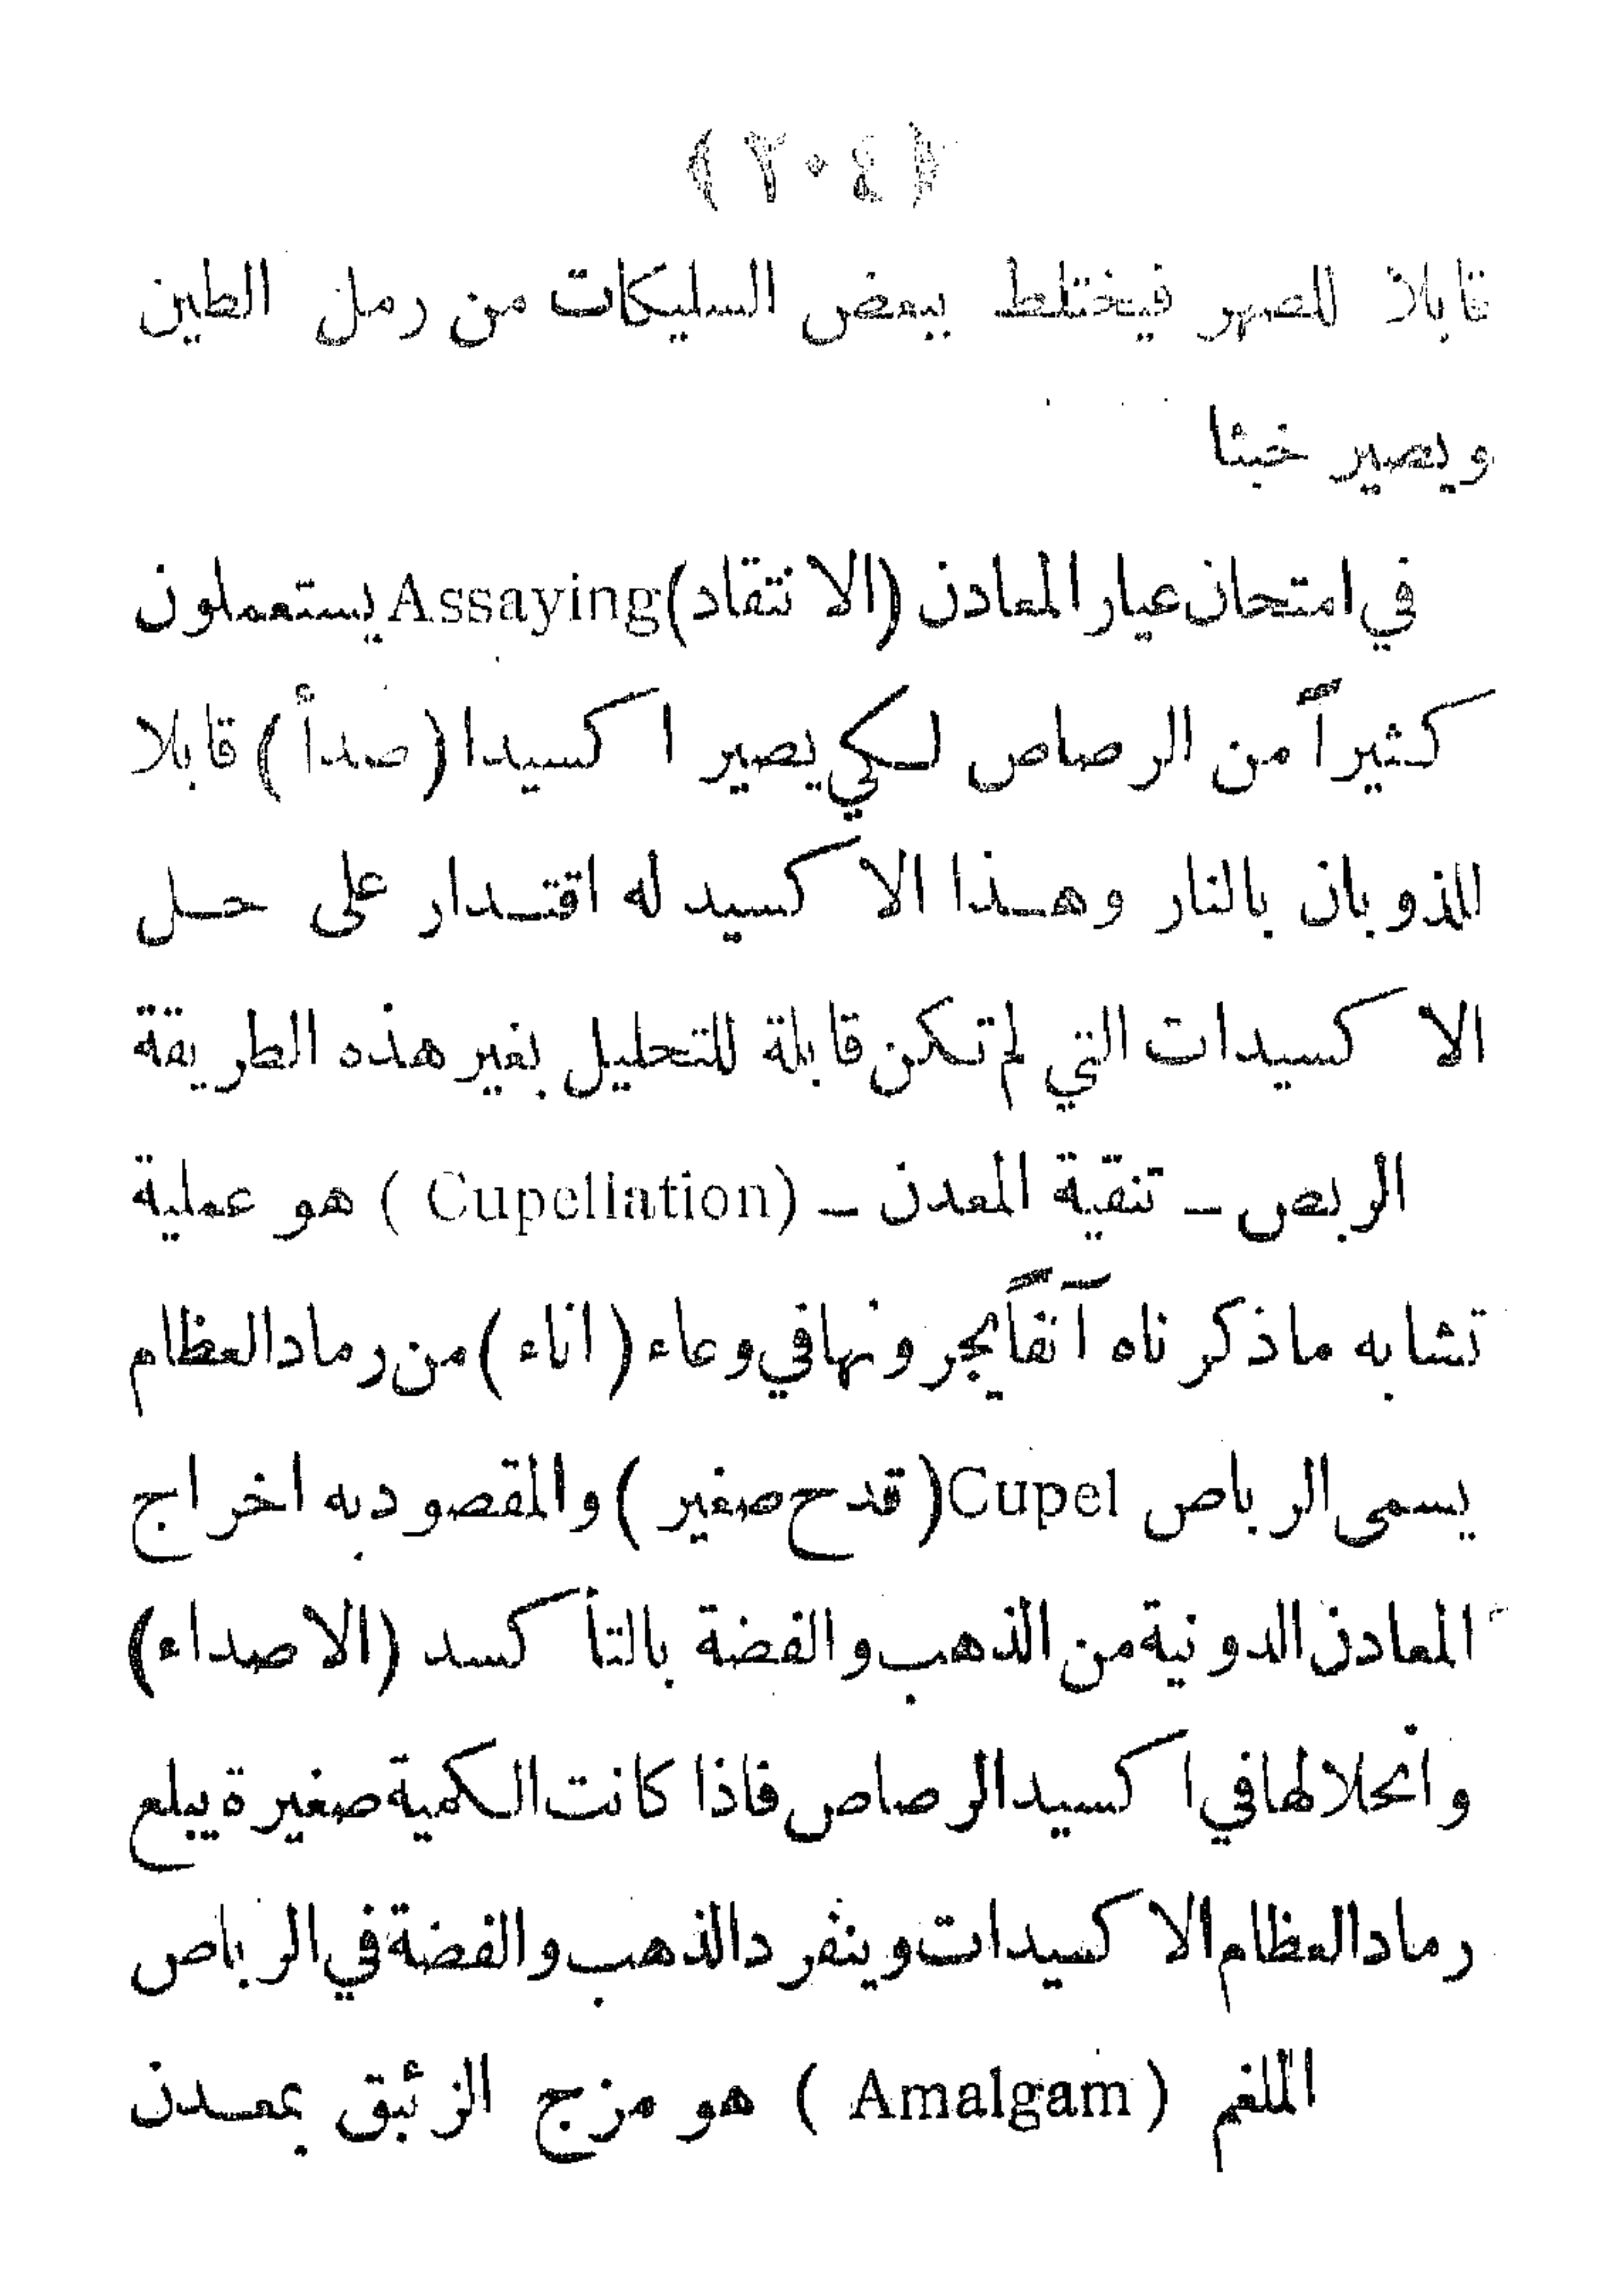 (٢٠٤)
قابلا للصهر فيختلط ببعض السليكات من رمل الطين
ويصير خبثا
في امتحان عيار المعادن (الانتقاد) Assaying يستعملون
كثيراً من الرصاص لكي يصير اكسيدا (صدأ) قابلا
للذوبان بالنار وهذا الاكسيد له اقتدار على حل
الاكسيدات التي لم تكن قابلة للتحليل بغير هذه الطريقة
الربص ـ تنقية المعدن ـ (Cupellation) هو عملية
تشابه ماذكرناه آنفاً يجرونها في وعاء (اناء) من رماد العظام
يسمى الرباص Cupel (قدح صغير) والمقصود به اخراج
المعادن الدونية من الذهب والفضة بالتأكسد (الاصداء)
وانحلالها في اكسيد الرصاص فاذا كانت الكمية صغيرة يبلع
رماد العظام الاكسيدات وينفرد الذهب والفضة في الرباص
الملغم (Amalgam) هو مزج الزئبق بمعدن